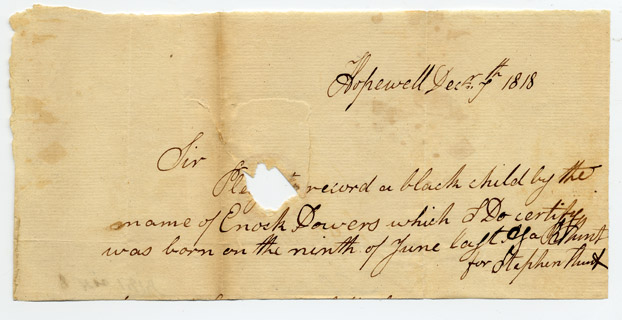 Hopewell Decr. 7th 1818
Sir
record a black child by the
name of Enock Dowers which I Do certify
was born on the ninth of June last.
for Stephen Hunt